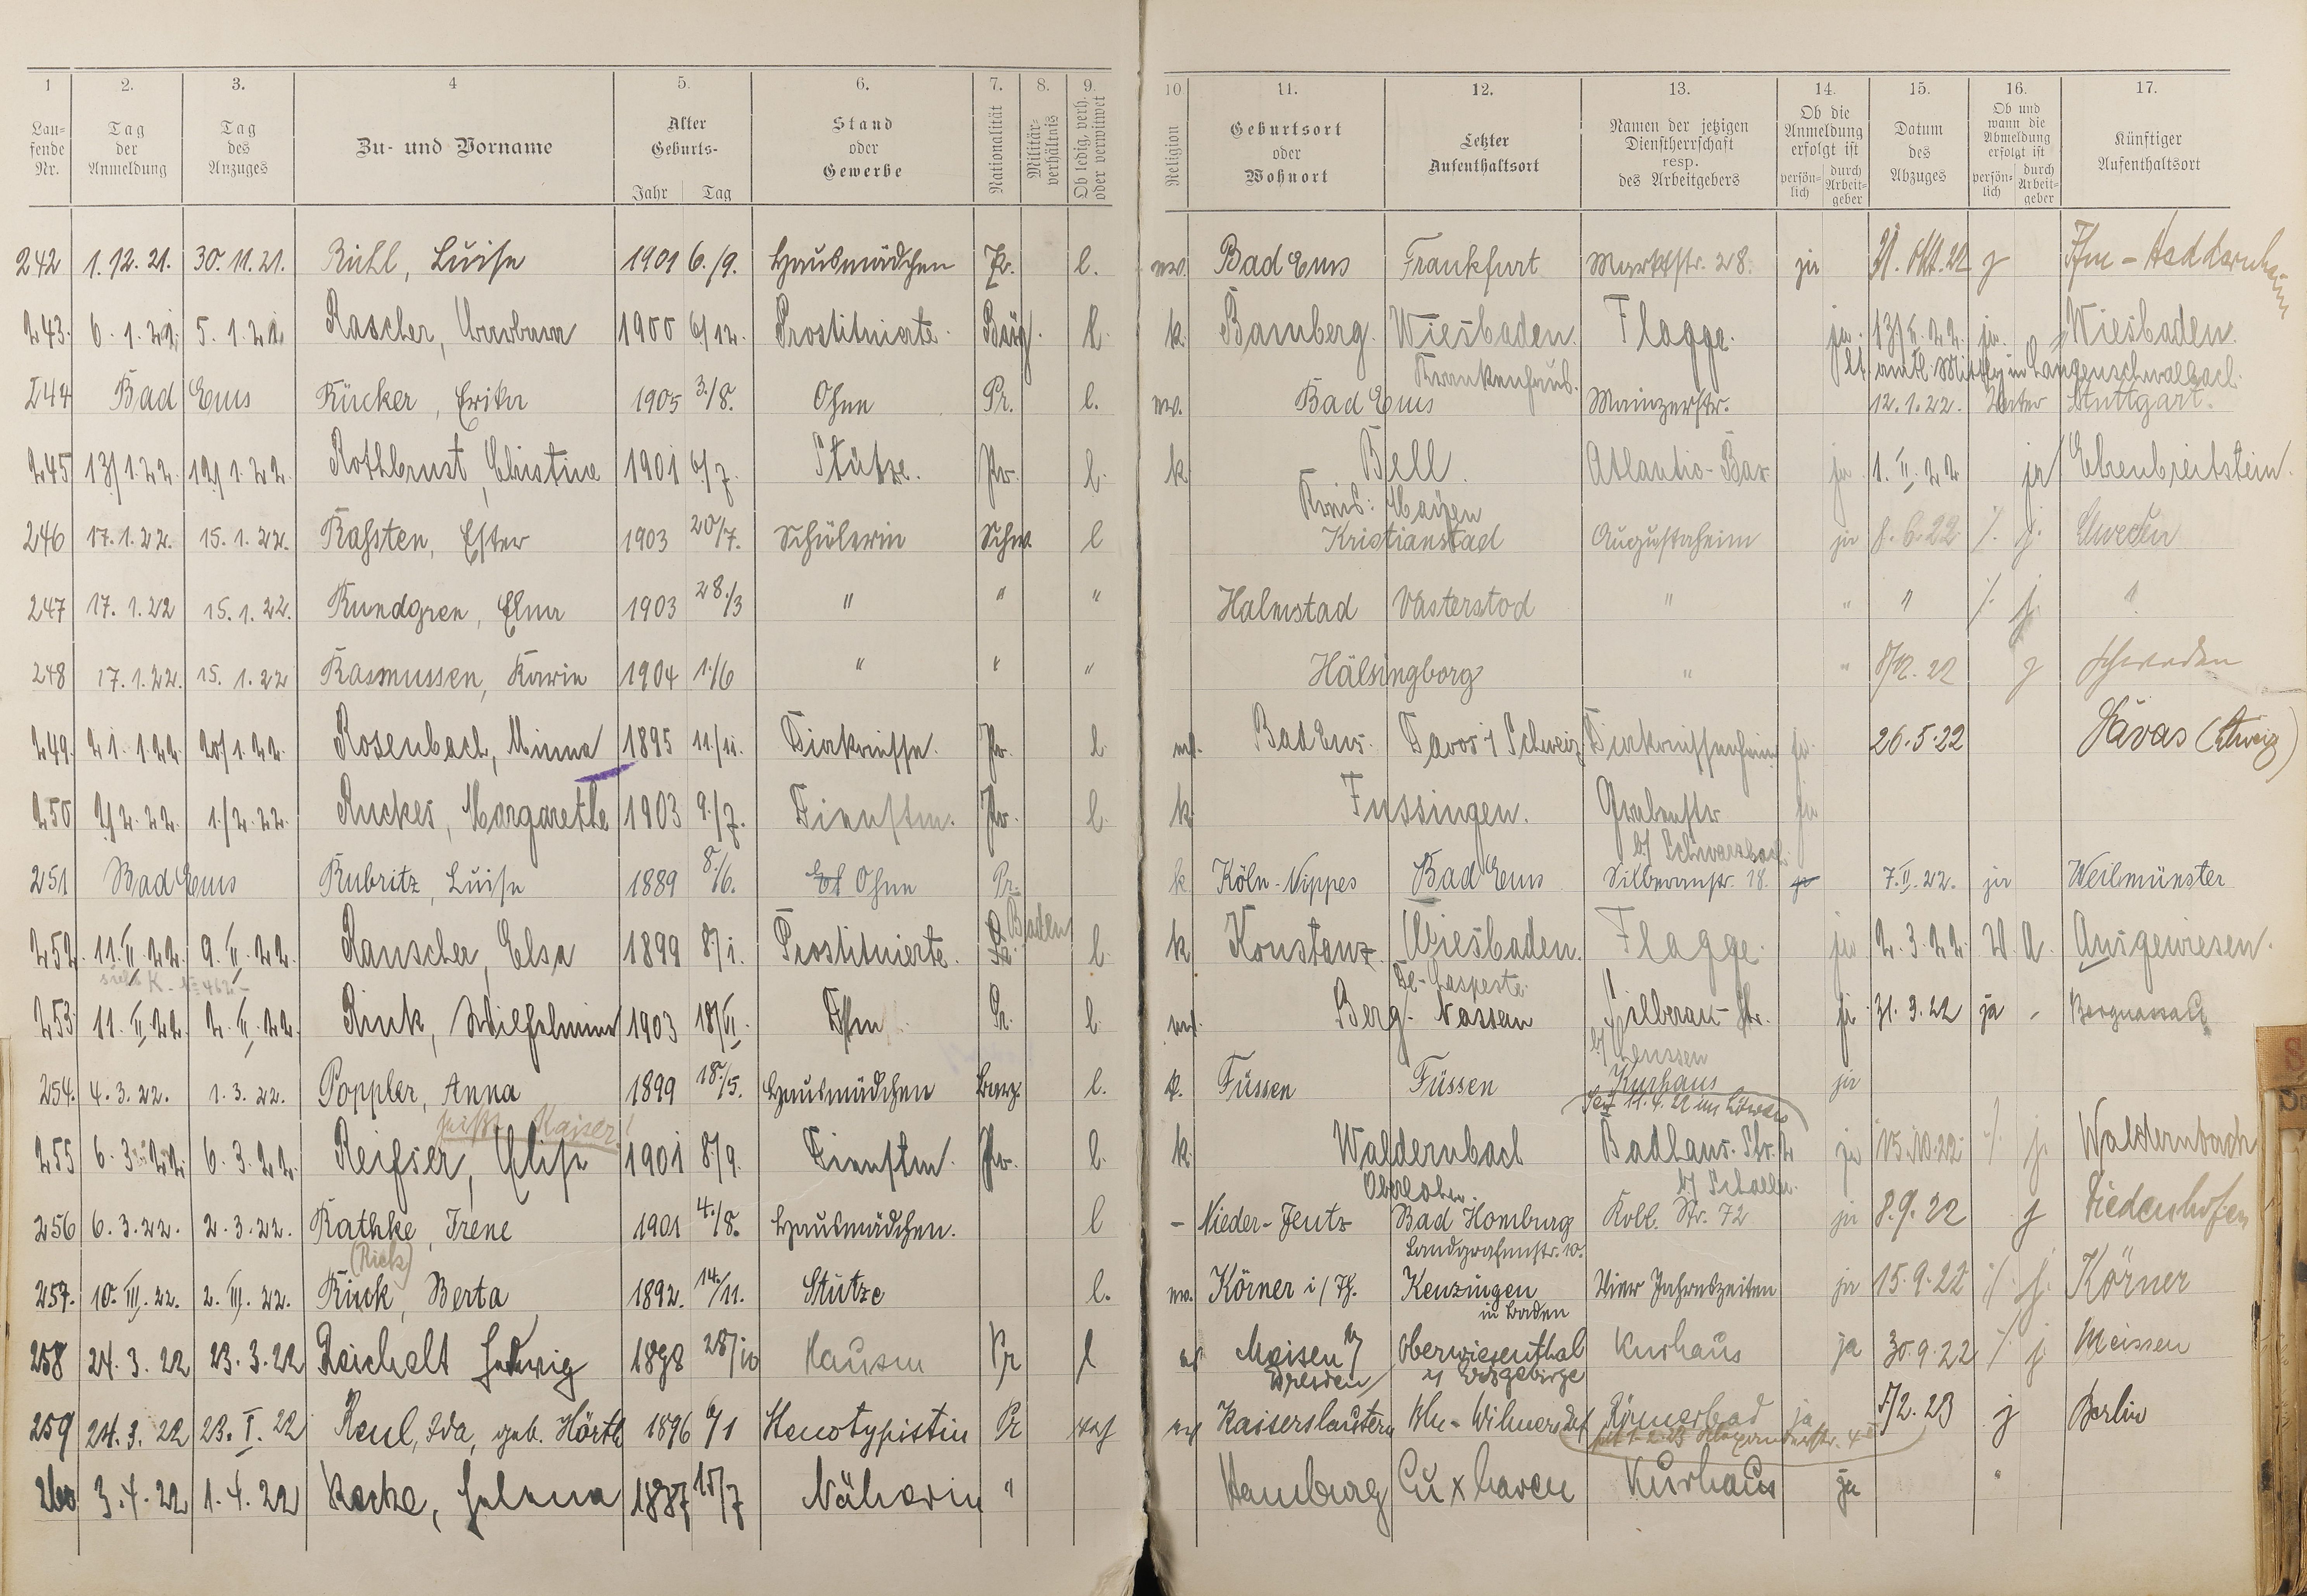 1 2. 3. 4 5. 6. 7. 8. 9. 10 11. 12. 13. 14. 15. 16. 17.
Lau-fende Nr. Tag der Anmeldung Tag des Anzuges Zu- und Vorname Alter Geburts- Jahr Tag Stand oder Gewerbe Nationalität Militär-verhältnis Ob ledig, verh. oder verwitwet Religion Geburtsort oder Wohnort Letzter Aufenthaltsort Namen der jetzigen Dienstherrschaft resp. des Arbeitgebers Ob die Anmeldung erfolgt ist persön-lich durch Arbeit-geber Datum des Abzuges Ob und wann die Abmeldung erfolgt ist persön-lich durch Arbeit-geber Künftiger Aufenthaltsort
242 1.12.21. 30.11.21. Rühl, Luise 1901 6./9. Hausmädchen Pr. l. ev. Bad Ems Frankfurt Marktstr. 28. ja 31. Okt. 22 j Ffm - Heddernheim
243. 6.1.22. 5.1.22. Rascher, Barbara 1900 6/12. Prostituierte. Bay. l. k. Bamberg. Wiesbaden. Flagge. ja. 13/I.22. ja. Wiesbaden.
Krankenhaus. lt. amtl. Mittlg in Langenschwalbach.
244 Bad Ems Rücker, Erika 1905 3./8. Ohne Pr. l. ev. Bad Ems Mainzerstr. 12.1.22. Vater Stuttgart.
245 13/1.22. 12/1.22. Rothbrust, Christine 1901 6/7. Stütze. Pr. l. k. Bell. Atlantic-Bar ja 1.II.22 ja Ehrenbreitstein.
Kreis: Mayen
246 17.1.22. 15.1.22. Rahsten, Ester 1903 20/7. Schülerin Schw. l Kristianstad Augustaheim ja 8.6.22 /. j. Schweden
247 17.1.22 15.1.22. Rundgren, Elna 1903 28./3 " " " Halmstad Västerstod " " " /. j. "
248 17.1.22. 15.1.22 Rasmussen, Karin 1904 1./6 " " " Hälsingborg " " 8/12.22 j Schweden
249. 21.1.22. 20/1.22. Rosenbach, Minna 1895 11./11. Diakonisse. Pr. l. ev. Bad Ems. Davos i Schweiz Diakonissenheim ja 26.5.22 Davos (Schweiz)
250 2/2.22. 1./2.22. Ruckes, Margarethe 1903 9./7. Dienstm. Pr. l. k. Fussingen. Grabenstr ja
b/ Schwarzbach.
251 Bad Ems Rubritz, Luise 1889 8./6. Ohne Pr. k Köln-Nippes Bad Ems Silberaustr. 18. 7.II.22. ja Weilmünster
252. 11.II.22. 9.II.22. Rauscher, Elsa 1899 8./1. Prostituierte. Baden l. k Konstanz Wiesbaden. Flagge. ja 2.3.22 W. A. Ausgewiesen.
siehe K. № 462
253. 11.II.22. 2.II.22. Rink, Wilhelmine 1903 18/VI. Ohne Pr. l. ev. Berg-Nassau Silberau-Str. ja 31.3.22 ja - Bergnassau
254. 4.3.22. 1.3.22. Poppler, Anna 1899 18./5. Hausmädchen Bay. l. k. Füssen Füssen Kurhaus ja
Seit 11.4.22 im Löwen
heißt Kaiser!
255 6.3.22. 6.3.22. Reifser, Elise 1901 8/9. Dienstm. Pr. l. k. Waldernbach Badhaus-Str. 2 ja 15.10.22 /. j. Waldernbach
Oberlahn.
256 6.3.22. 2.3.22. Rathke, Irene 1901 4./8. Hausmädchen. l - Nieder-Jeutz Bad Homburg Kobl. Str. 72 ja 8.9.22 j Diedenhofen
(Rick) Landgrafenstr. 10.
257. 10.III.22. 2.III.22. Rück, Berta 1892. 14./11. Stütze l. ev. Körner i/Th. Kenzingen Vier Jahreszeiten ja 15.9.22 /. j. Körner
in Baden
258 24.3.22 23.3.22 Reichelt Hedwig 1898 28/10 Hausm Pr l ev Meisen b/ Oberwiesenthal Kurhaus ja 30.9.22 /. j. Meissen
Dresden i/ Erzgebirge
259 24.3.22 23.I.22 Reul, Ida, geb. Hörth 1896 9/1 Stenotypistin Pr ev Kaiserslautern Bln-Wilmersdf Römerbad ja 5/2.23 j Berlin
Alexanderstr. 4
260 3.4.22 1.4.22 Racke, Helena 1887 15/7 Näherin " Hamburg Cuxhaven Kurhaus ja